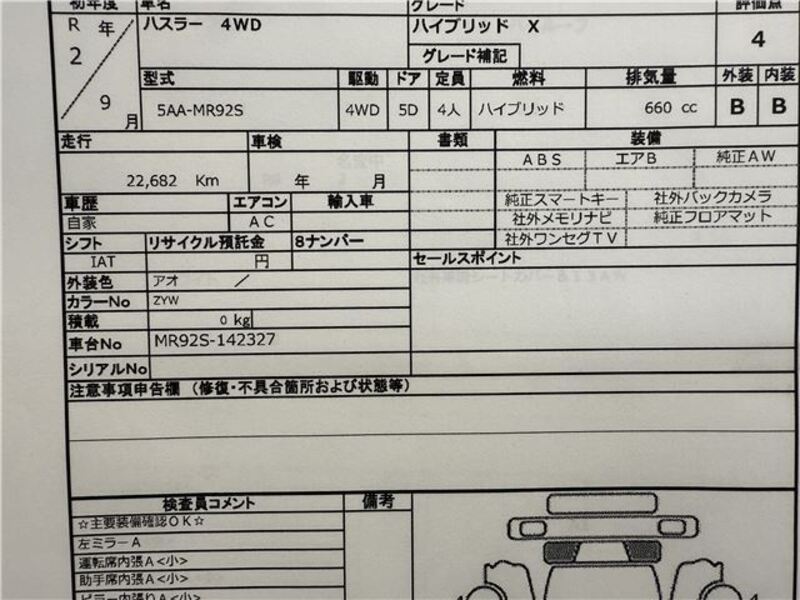 初年度 車名 グレード 評価点
R 年 ハスラー 4WD ハイブリッド X 4
2 グレード補記
9 月
型式 駆動 ドア 定員 燃料 排気量 外装 内装
5AA-MR92S 4WD 5D 4人 ハイブリッド 660 cc B B
走行 車検 書類 装備
22,682 Km 年 月
ABS エアB 純正AW
純正スマートキー 社外バックカメラ
社外メモリナビ 純正フロアマット
社外ワンセグTV
車歴 エアコン 輸入車
自家 AC
シフト リサイクル預託金 8ナンバー
IAT 円
セールスポイント
外装色 アオ /
カラーNo ZYW
積載 0 kg
車台No MR92S-142327
シリアルNo
注意事項申告欄 (修復・不具合箇所および状態等)
検査員コメント 備考
☆主要装備確認OK☆
左ミラーA
運転席内張A<小>
助手席内張A<小>
ピラー内張りA<小>